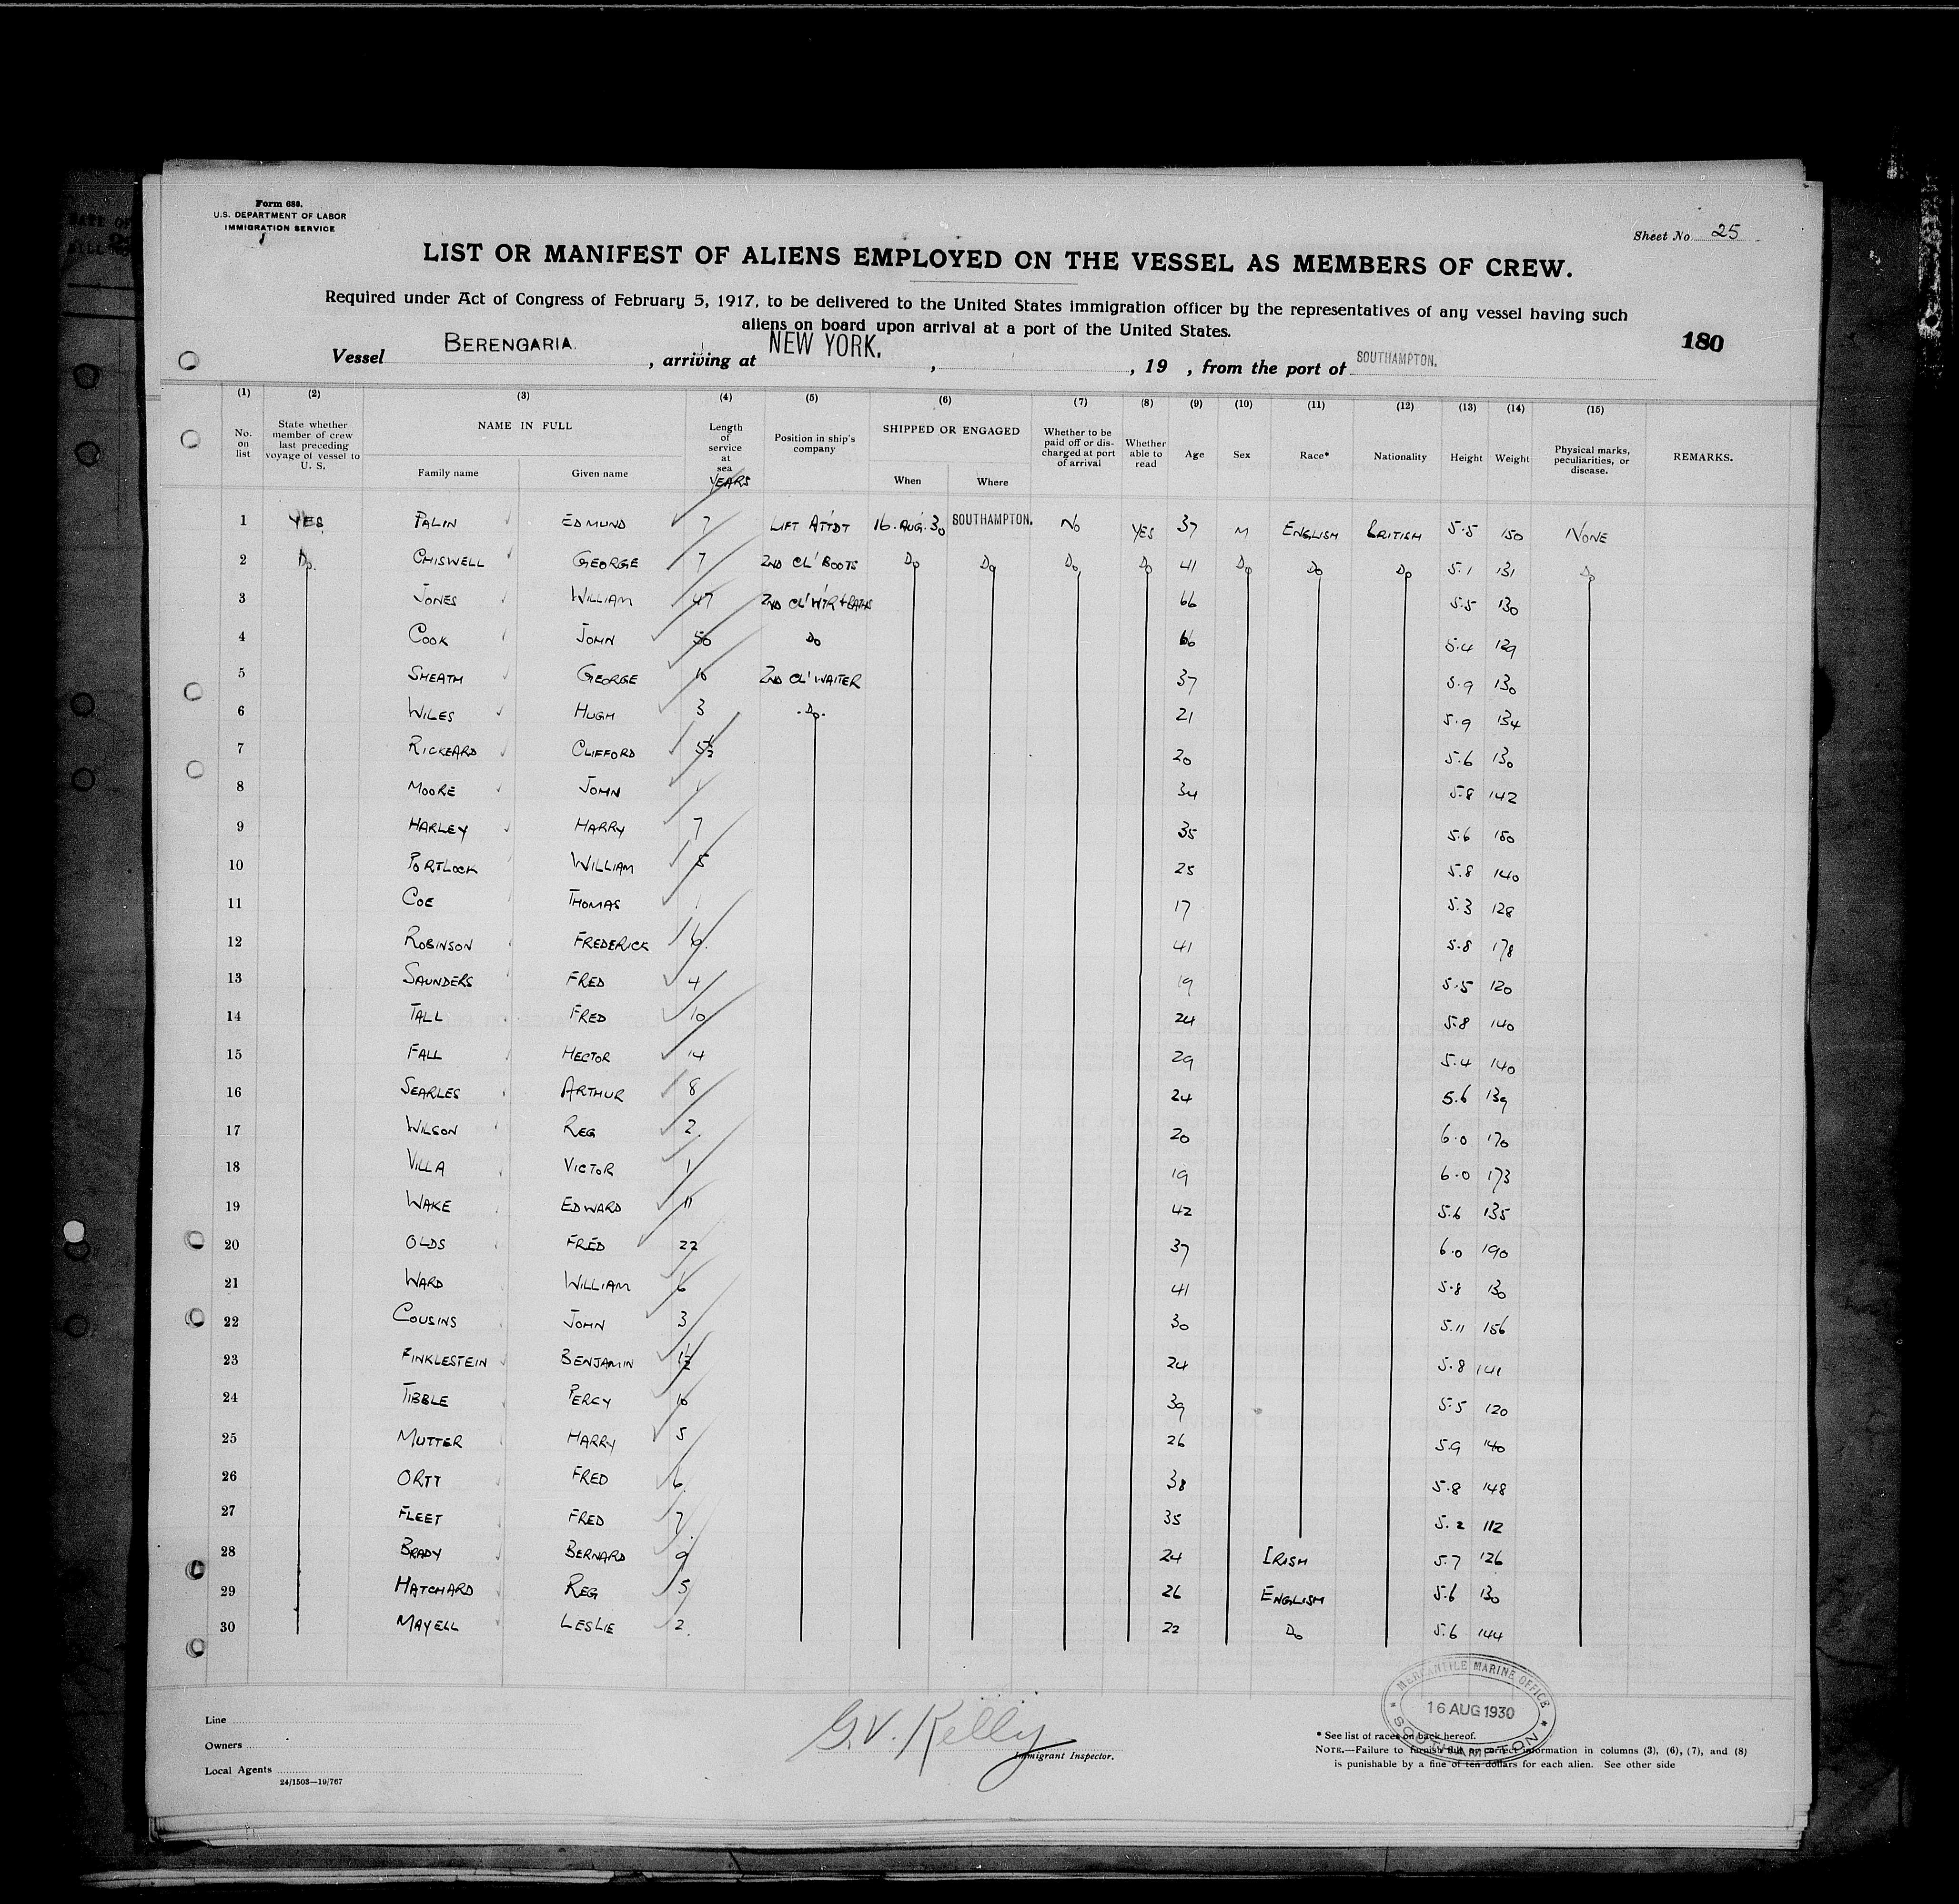 Form 680.
U.S. DEPARTMENT OF LABOR
IMMIGRATION SERVICE
Sheet No 25
LIST OR MANIFEST OF ALIENS EMPLOYED ON THE VESSEL AS MEMBERS OF CREW.
Required under Act of Congress of February 5, 1917, to be delivered to the United States immigration officer by the representatives of any vessel having such
aliens on board upon arrival at a port of the United States.
180
Vessel BERENGARIA. , arriving at NEW YORK. , , 19 , from the port of SOUTHAMPTON.
(1) (2) (3) (4) (5) (6) (7) (8) (9) (10) (11) (12) (13) (14) (15)
No. on list State whether member of crew last preceding voyage of vessel to U. S. NAME IN FULL Family name Given name Length of service at sea YEARS Position in ship's company SHIPPED OR ENGAGED When Where Whether to be paid off or discharged at port of arrival Whether able to read Age Sex Race* Nationality Height Weight Physical marks, peculiarities, or disease. REMARKS.
1 YES PALIN EDMUND 7 LIFT ATTDT 16. AUG. 30 SOUTHAMPTON. NO YES 37 M ENGLISH BRITISH 5.5 150 NONE
2 Do. CHISWELL GEORGE 7 2ND CL' BOOTS Do Do Do Do 41 Do Do Do 5.1 131 Do
3 JONES WILLIAM 47 2ND CL' WTR + BATHS 66 5.5 130
4 COOK JOHN 50 Do 66 5.4 129
5 SHEATH GEORGE 10 2ND CL' WAITER 37 5.9 130
6 WILES HUGH 3 -Do- 21 5.9 134
7 RICKEARD CLIFFORD 5½ 20 5.6 130
8 MOORE JOHN 34 5.8 142
9 HARLEY HARRY 7 35 5.6 150
10 PORTLOCK WILLIAM 5 25 5.8 140
11 COE THOMAS 1 17 5.3 128
12 ROBINSON FREDERICK 6. 41 5.8 178
13 SAUNDERS FRED 4 19 5.5 120
14 TALL FRED 10 24 5.8 140
15 FALL HECTOR 14 29 5.4 140
16 SEARLES ARTHUR 8 24 5.6 139
17 WILSON REG 2. 20 6.0 170
18 VILLA VICTOR 1 19 6.0 173
19 WAKE EDWARD 11 42 5.6 135
20 OLDS FRED 22 37 6.0 190
21 WARD WILLIAM 6 41 5.8 130
22 COUSINS JOHN 3 30 5.11 156
23 FINKLESTEIN BENJAMIN 1½ 24 5.8 141
24 TIBBLE PERCY 10 39 5.5 120
25 MUTTER HARRY 5 26 5.9 140
26 ORTT FRED 6. 38 5.8 148
27 FLEET FRED 7. 35 5.2 112
28 BRADY BERNARD 9 24 IRISH 5.7 126
29 HATCHARD REG 5 26 ENGLISH 5.6 130
30 MAYELL LESLIE 2. 22 Do 5.6 144
MERCANTILE MARINE OFFICE
16 AUG 1930
SOUTHAMPTON
Line
Owners
Local Agents
24/1503—19/767
G.V. Kelly
Immigrant Inspector.
* See list of races on back hereof.
NOTE.—Failure to furnish full or correct information in columns (3), (6), (7), and (8)
is punishable by a fine of ten dollars for each alien. See other side